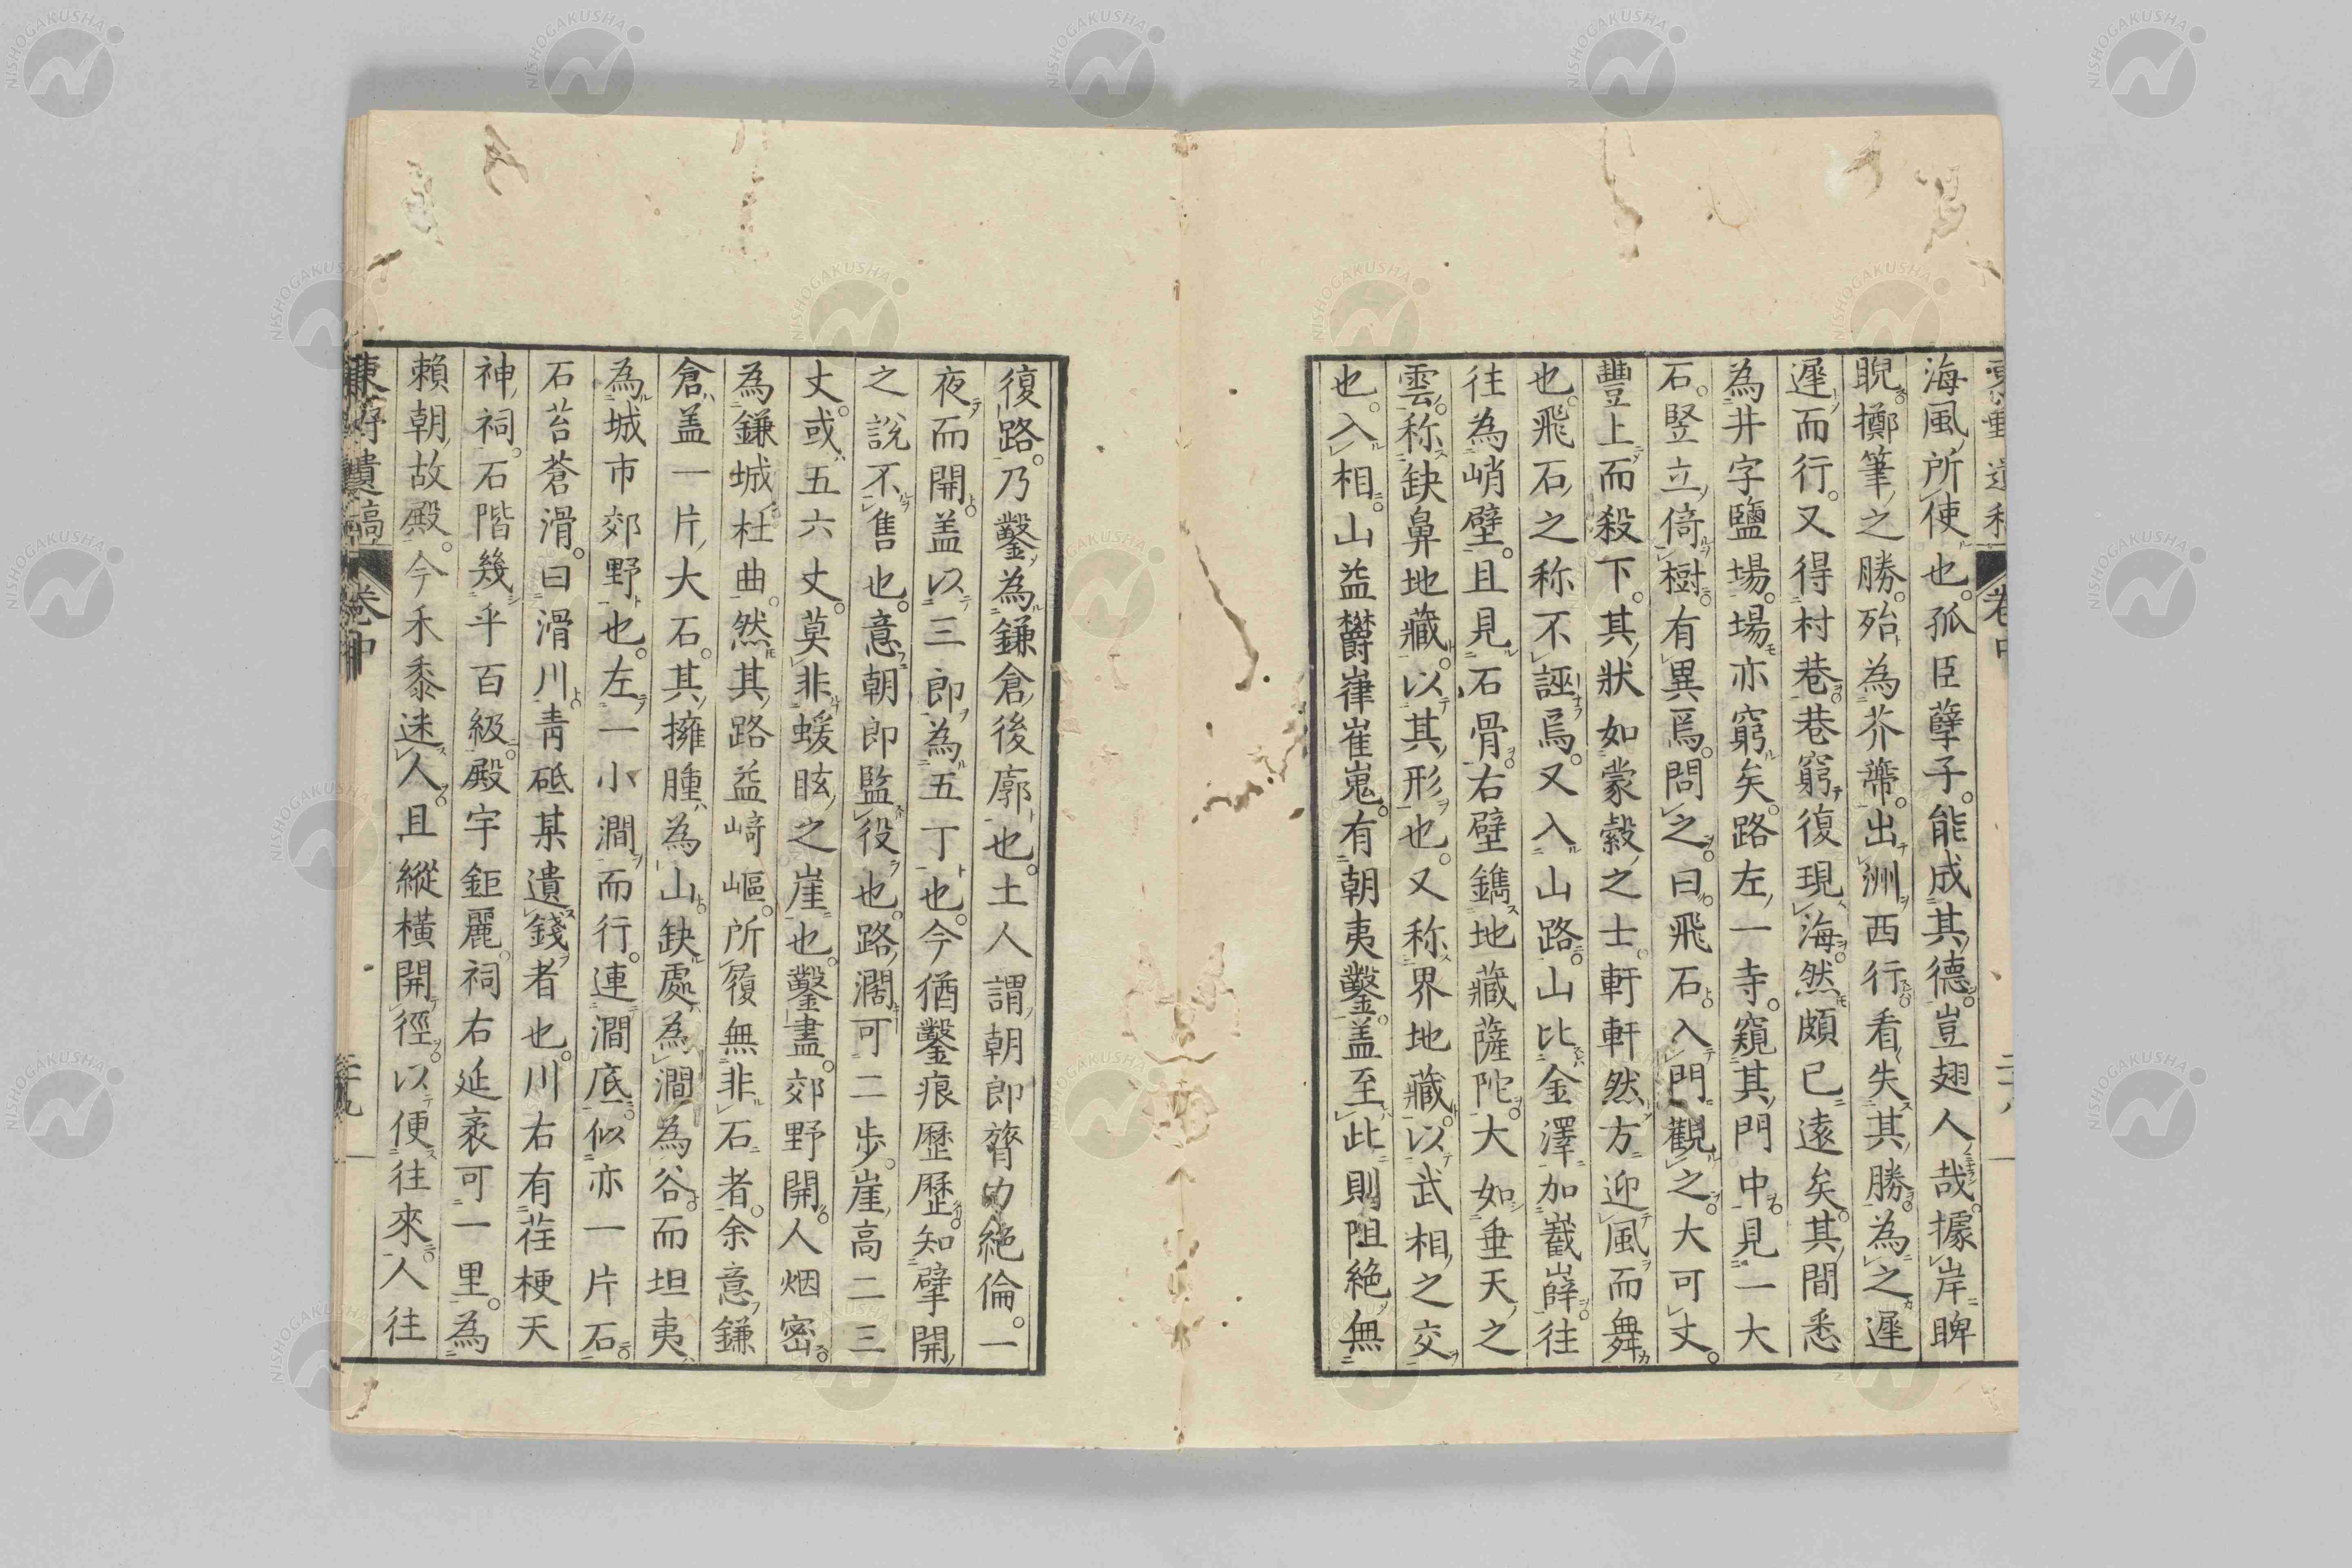 海風所使也。孤臣孽子。能成其德。豈翅人哉。據岸睥
睨。擲筆之勝。殆為芥蔕。出洲西行。看失其勝。為之遲
遲而行。又得村巷。巷窮復現海。然頗已遠矣。其間悉
為井字鹽場。場亦窮矣。路左一寺。窺其門中。見一大
石。竪立倚樹。有異焉。問之。曰。飛石。入門觀之。大可丈。
豐上而殺下。其狀如蒙縠之士。軒軒然方迎風而舞
也。飛石之称不誣焉。又入山路。山比金澤加巀嶭。往
往為峭壁。且見石骨。右壁鐫地藏薩陀。大如垂天之
雲。称缺鼻地藏。以其形也。又称界地藏。以武相之交
也。入相。山益欝嵂崔嵬。有朝夷鑿。盖至此則阻絶無
復路。乃鑿為鎌倉後廓也。土人謂朝郎膂力絶倫。一
夜而開。盖以三郎為五丁也。今猶鑿痕歷歷。知擘開
之說不售也。意朝郎監役也。路濶可二步。崖高二三
丈。或五六丈。莫非蝯眩之崖也。鑿盡。郊野開。人烟密。
為鎌城杜曲。然其路益﨑嶇。所履無非石者。余意鎌
倉盖一片大石。其擁腫為山。缺處為澗為谷。而坦夷
為城市郊野也。左一小澗而行。連澗底。似亦一片石。
石苔蒼滑。曰滑川。青砥某遺錢者也。川右有荏梗天
神祠。石階幾乎百級。殿宇鉅麗。祠右延袤可一里。為
賴朝故殿。今禾黍迷人。且縱橫開徑。以便往來。人往
卷中
NISHOGAKUSHA